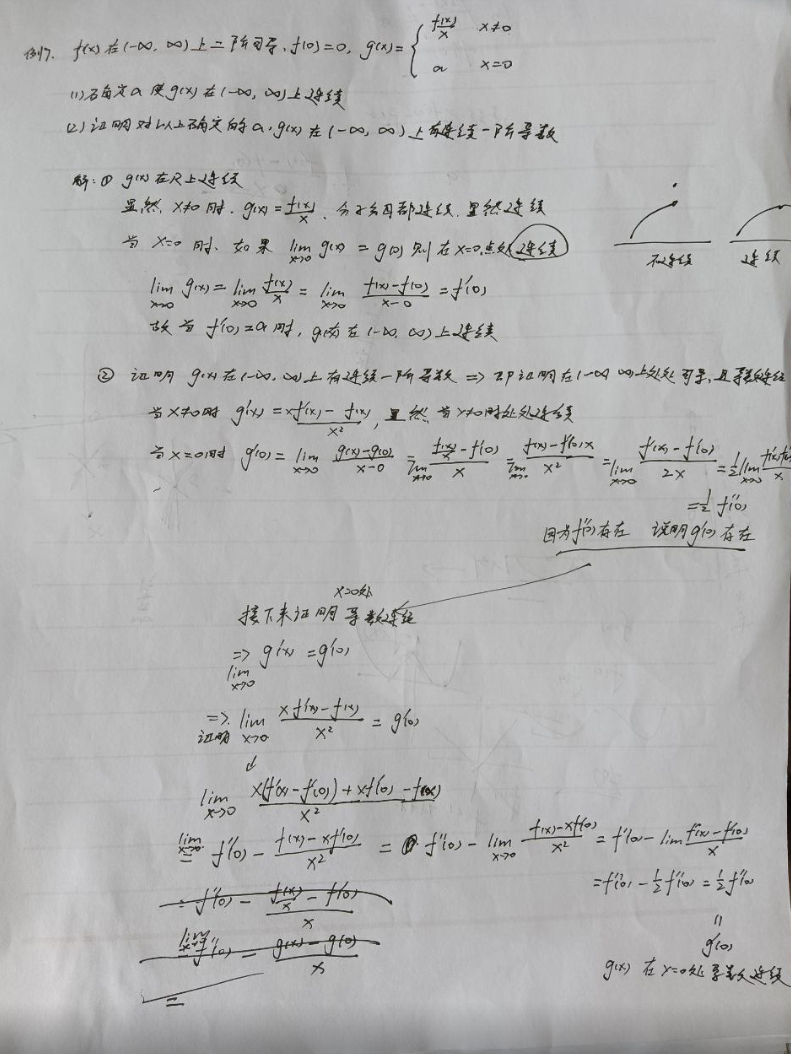 例7. f(x)在(-∞, ∞)上二阶可导, f(0)=0, g(x)={ f(x)/x x≠0
a x=0
(1)确定a使g(x)在(-∞, ∞)上连续
(2)证明对以上确定的a, g(x)在(-∞, ∞)上有连续一阶导数
解: ① g(x)在R上连续
显然, x≠0时, g(x)=f(x)/x, 分子分母都连续, 显然连续
当 x=0时, 如果 lim x→0 g(x) = g(0) 则在x=0点处连续
不连续 连续
lim x→0 g(x) = lim x→0 f(x)/x = lim x→0 (f(x)-f(0))/(x-0) = f'(0)
故当 f'(0)=a时, g(x)在(-∞, ∞)上连续
② 证明 g(x)在(-∞, ∞)上有连续一阶导数 => 即证明在(-∞, ∞)上处处可导, 且导数连续
当x≠0时 g'(x) = (xf'(x) - f(x))/x², 显然当x≠0时处处连续
当x=0时 g'(0) = lim x→0 (g(x)-g(0))/(x-0) = lim x→0 (f(x)/x - f'(0))/x = lim x→0 (f(x)-f'(0)x)/x² = lim x→0 (f'(x)-f'(0))/2x = ½ lim x→0 (f'(x)-f'(0))/x
= ½ f''(0)
因为f''(0)存在 说明g'(0)存在
x=0处
接下来证明导数连续
=> lim x→0 g'(x) = g'(0)
=> 证明 lim x→0 (xf'(x)-f(x))/x² = g'(0)
↓
lim x→0 (x(f'(x)-f'(0))+xf'(0)-f(x))/x²
= lim x→0 f''(0) - (f(x)-xf'(0))/x² = f''(0) - lim x→0 (f(x)-xf'(0))/x² = f''(0) - lim (f'(x)-f'(0))/x
= f''(0) - ½f''(0) = ½f''(0)
= f''(0) - (f(x)/x - f'(0))/x
= lim x→0 f''(0) - (g(x)-g(0))/x
=
"
g'(0)
g(x) 在x=0处导数连续